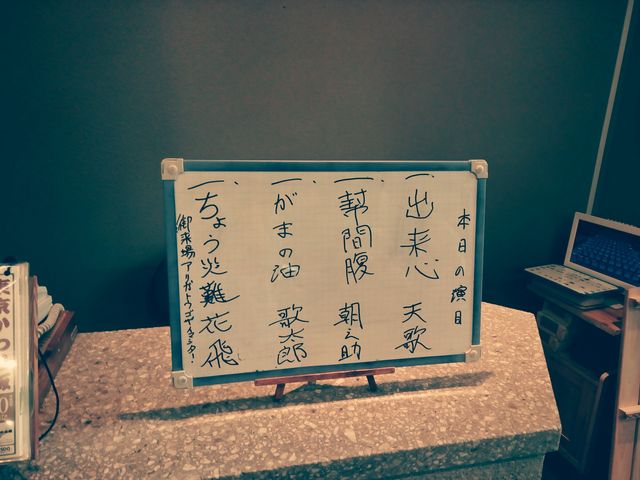 本日の演目
一、出来心 天歌
一、幇間腹 朝之助
一、がまの油 歌太郎
一、ちょう災難 花飛
御来場アリガトウゴザイマシター